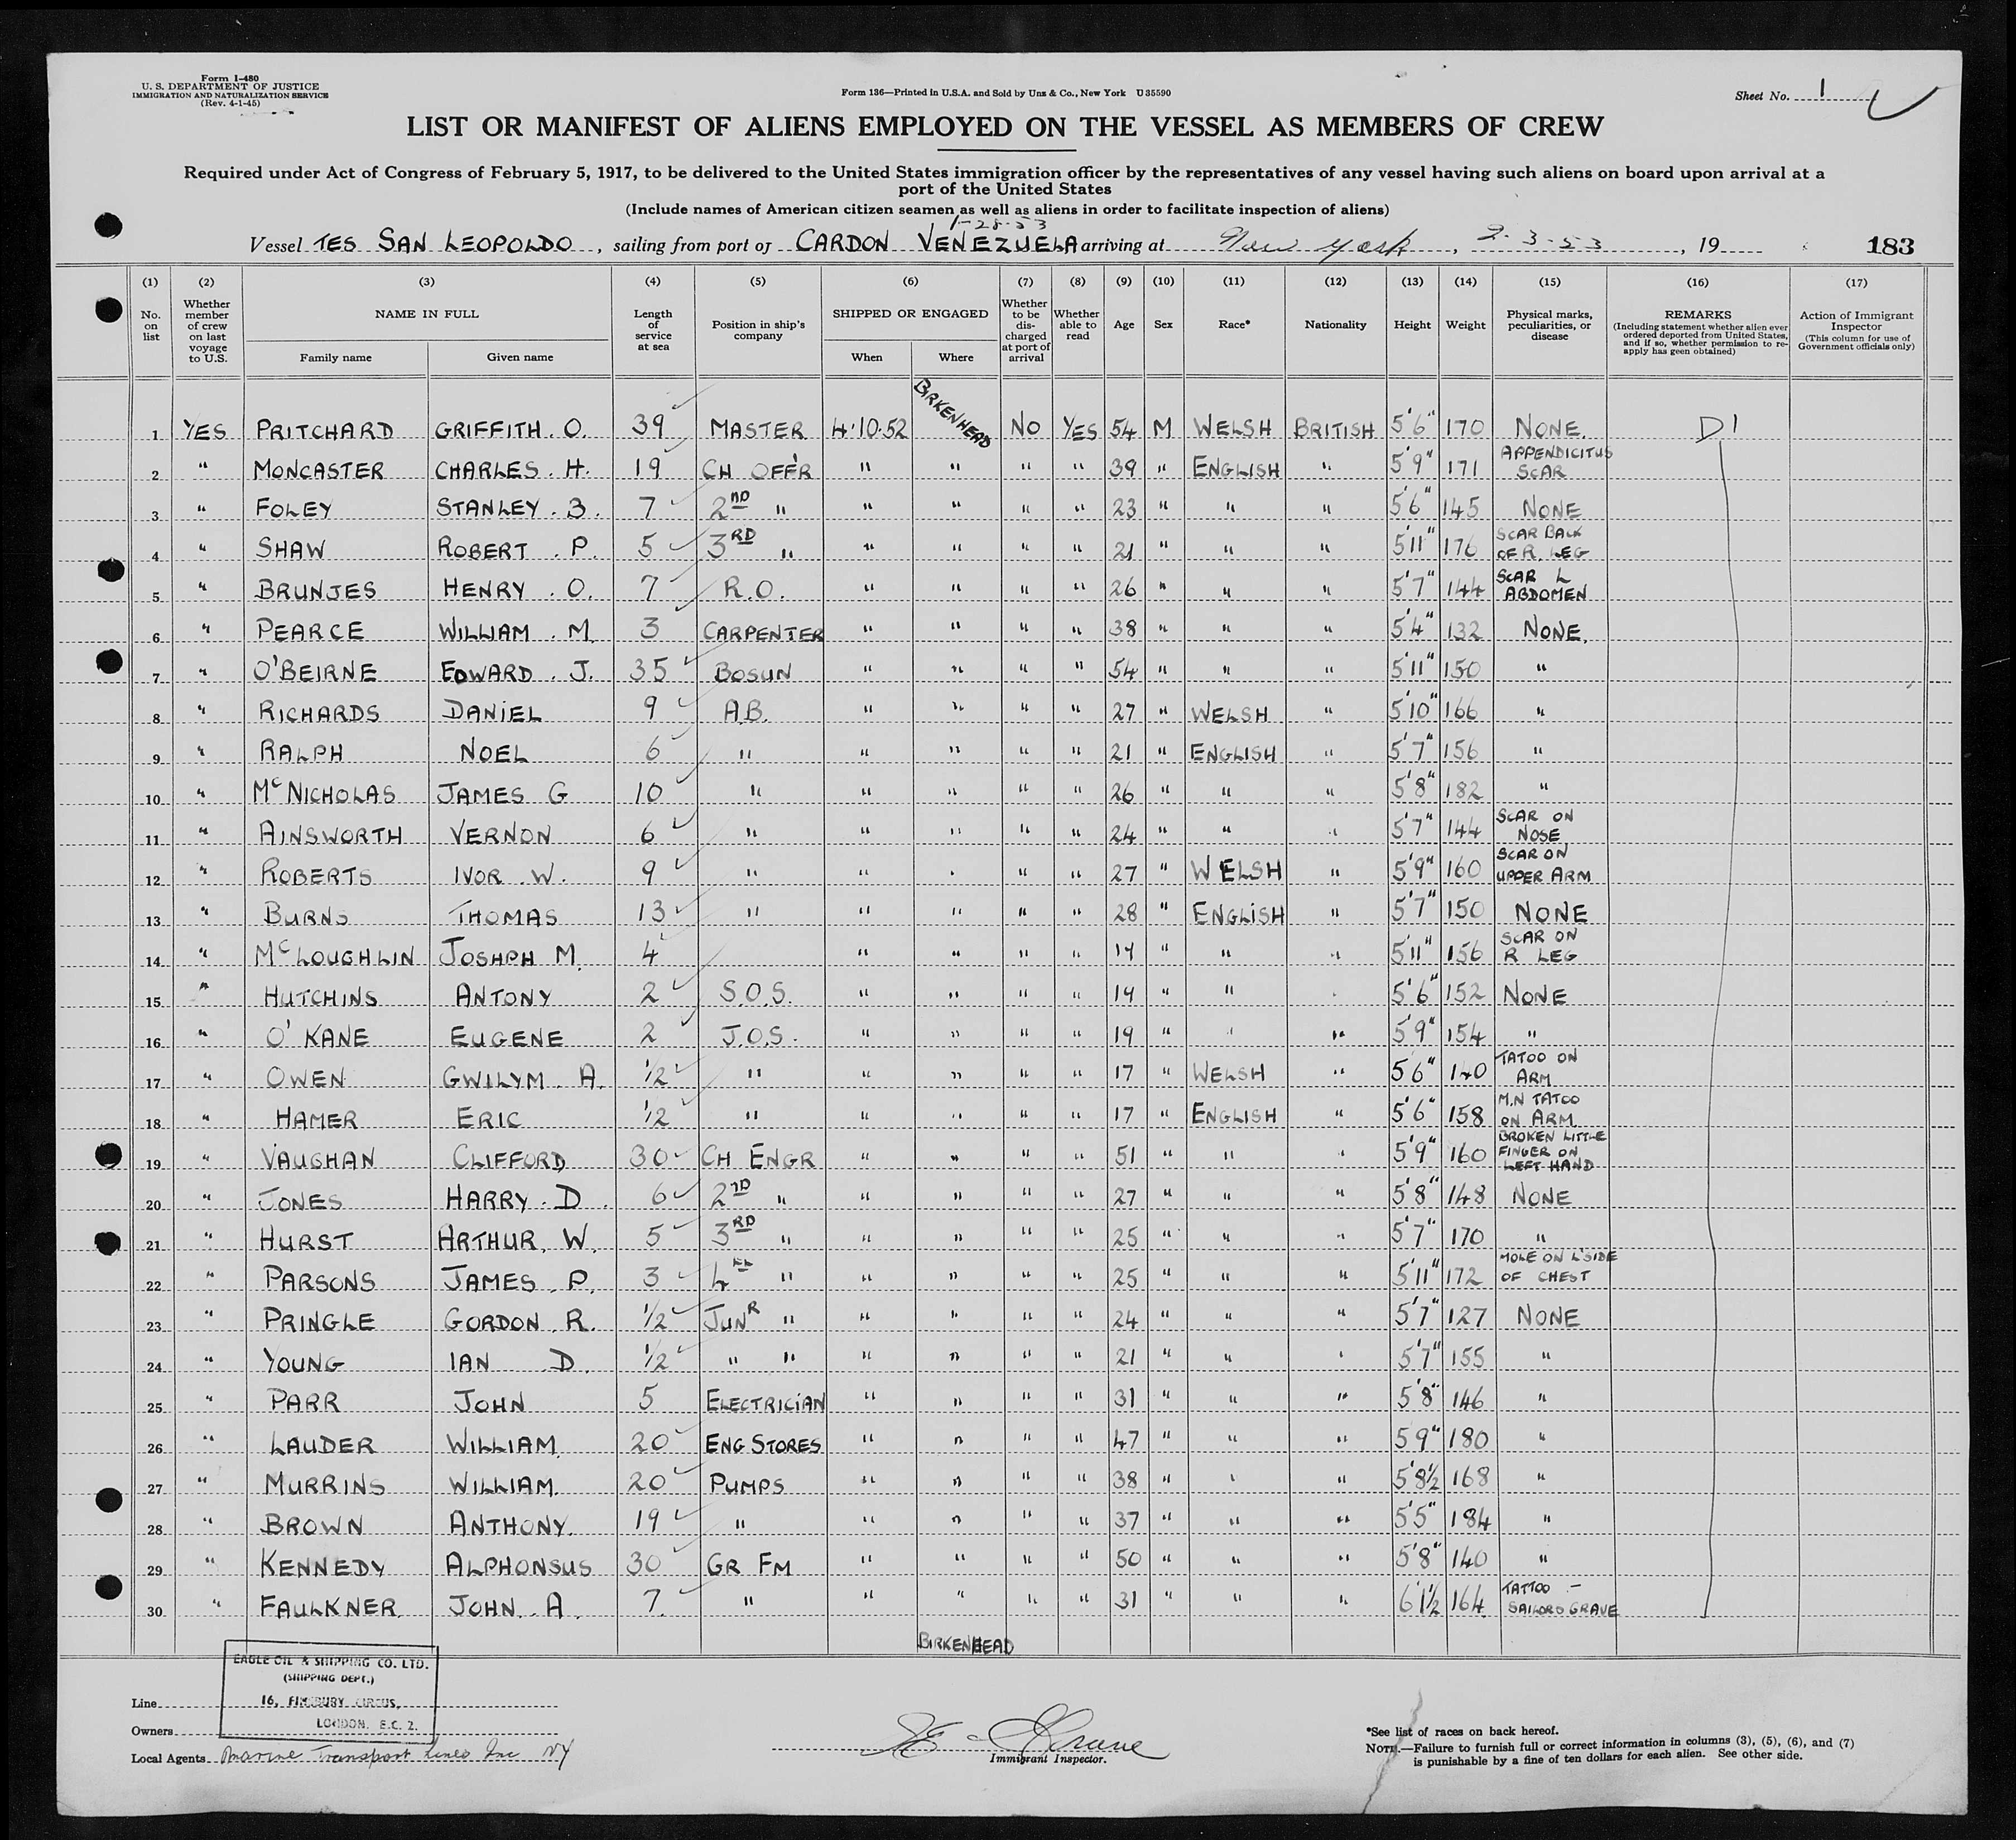 Form I-480
U. S. DEPARTMENT OF JUSTICE
IMMIGRATION AND NATURALIZATION SERVICE
(Rev. 4-1-45)
Form 136—Printed in U.S.A. and Sold by Unz & Co., New York U 35590
Sheet No. 1
LIST OR MANIFEST OF ALIENS EMPLOYED ON THE VESSEL AS MEMBERS OF CREW
Required under Act of Congress of February 5, 1917, to be delivered to the United States immigration officer by the representatives of any vessel having such aliens on board upon arrival at a
port of the United States
(Include names of American citizen seamen as well as aliens in order to facilitate inspection of aliens)
1-28-53
Vessel TES SAN LEOPOLDO, sailing from port of CARDON VENEZUELA arriving at New York, 2-3-53, 19 183
(1) (2) (3) (4) (5) (6) (7) (8) (9) (10) (11) (12) (13) (14) (15) (16) (17)
No. on list
Whether member of crew on last voyage to U.S.
NAME IN FULL
Family name
Given name
Length of service at sea
Position in ship's company
SHIPPED OR ENGAGED
When
Where
Whether to be discharged at port of arrival
Whether able to read
Age
Sex
Race*
Nationality
Height
Weight
Physical marks, peculiarities, or disease
REMARKS
(Including statement whether alien ever ordered deported from United States, and if so, whether permission to re-apply has geen obtained)
Action of Immigrant Inspector
(This column for use of Government officials only)
1 YES PRITCHARD GRIFFITH. O. 39 MASTER 4·10·52 BIRKENHEAD NO YES 54 M WELSH BRITISH 5'6" 170 NONE. D1
2 " MONCASTER CHARLES. H. 19 CH OFF'R " " " " 39 " ENGLISH " 5'9" 171 APPENDICITUS SCAR
3 " FOLEY STANLEY. B. 7 2ND " " " " " 23 " " " 5'6" 145 NONE
4 " SHAW ROBERT. P. 5 3RD " " " " " 21 " " " 5'11" 176 SCAR BACK OF R. LEG
5 " BRUNJES HENRY. O. 7 R.O. " " " " 26 " " " 5'7" 144 SCAR L ABDOMEN
6 " PEARCE WILLIAM. M. 3 CARPENTER " " " " 38 " " " 5'4" 132 NONE.
7 " O'BEIRNE EDWARD. J. 35 BOSUN " " " " 54 " " " 5'11" 150 "
8 " RICHARDS DANIEL 9 A.B. " " " " 27 " WELSH " 5'10" 166 "
9 " RALPH NOEL 6 " " " " " 21 " ENGLISH " 5'7" 156 "
10 " McNICHOLAS JAMES G 10 " " " " " 26 " " " 5'8" 182 "
11 " AINSWORTH VERNON 6 " " " " " 24 " " " 5'7" 144 SCAR ON NOSE
12 " ROBERTS IVOR. W. 9 " " " " " 27 " WELSH " 5'9" 160 SCAR ON UPPER ARM
13 " BURNS THOMAS 13 " " " " " 28 " ENGLISH " 5'7" 150 NONE
14 " McLOUGHLIN JOSHPH M. 4 " " " " 19 " " " 5'11" 156 SCAR ON R LEG
15 " HUTCHINS ANTONY 2 S.O.S. " " " " 19 " " " 5'6" 152 NONE
16 " O'KANE EUGENE 2 J.O.S. " " " " 19 " " " 5'9" 154 "
17 " OWEN GWILYM. A. 1/2 " " " " " 17 " WELSH " 5'6" 140 TATOO ON ARM
18 " HAMER ERIC 1/2 " " " " " 17 " ENGLISH " 5'6" 158 M.N TATOO ON ARM
19 " VAUGHAN CLIFFORD 30 CH ENGR " " " " 51 " " " 5'9" 160 BROKEN LITTLE FINGER ON LEFT HAND
20 " JONES HARRY. D. 6 2ND " " " " " 27 " " " 5'8" 148 NONE
21 " HURST ARTHUR. W. 5 3RD " " " " " 25 " " " 5'7" 170 "
22 " PARSONS JAMES. P. 3 4TH " " " " " 25 " " " 5'11" 172 MOLE ON L'SIDE OF CHEST
23 " PRINGLE GORDON. R. 1/2 JUNR " " " " " 24 " " " 5'7" 127 NONE
24 " YOUNG IAN D 1/2 " " " " " " 21 " " " 5'7" 155 "
25 " PARR JOHN 5 ELECTRICIAN " " " " 31 " " " 5'8" 146 "
26 " LAUDER WILLIAM. 20 ENG STORES " " " " 47 " " " 5 9" 180 "
27 " MURRINS WILLIAM. 20 PUMPS " " " " 38 " " " 5'8½ 168 "
28 " BROWN ANTHONY. 19 " " " " " 37 " " " 5'5" 184 "
29 " KENNEDY ALPHONSUS 30 GR FM " " " " 50 " " " 5'8" 140 "
30 " FAULKNER JOHN. A. 7 " " " " " 31 " " " 6'1½ 164 TATTOO - SAILORS GRAVE
BIRKENHEAD
EAGLE OIL & SHIPPING CO. LTD.
(SHIPPING DEPT.)
16, FINSBURY CIRCUS,
LONDON. E.C. 2.
Line
Owners
Local Agents Marine Transport Lines Inc NY
Immigrant Inspector.
*See list of races on back hereof.
NOTE.—Failure to furnish full or correct information in columns (3), (5), (6), and (7)
is punishable by a fine of ten dollars for each alien. See other side.